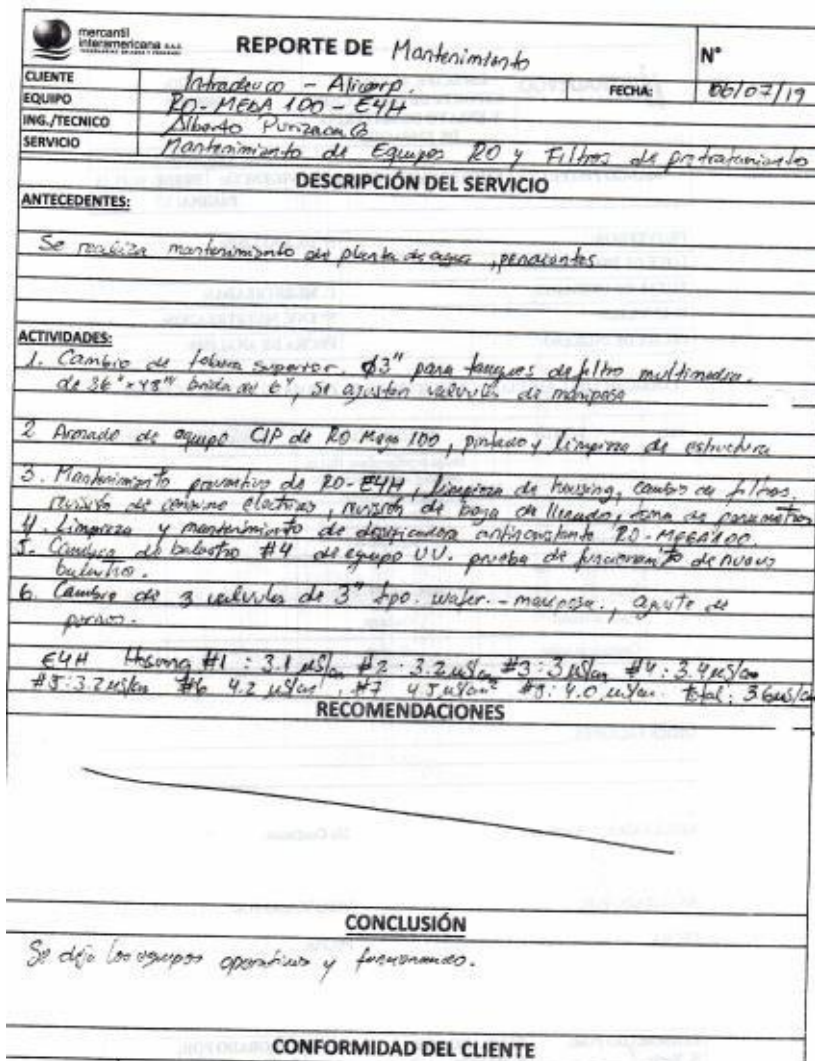 mercantil
interamericana s.a.c.
REPORTE DE Mantenimiento
N°
CLIENTE Intradevco - Alicorp.
FECHA: 06/07/19
EQUIPO RO-MEGA 100 - E4H
ING./TECNICO Alberto Purizaca
SERVICIO Mantenimiento de Equipos RO y Filtros de pretratamiento
DESCRIPCIÓN DEL SERVICIO
ANTECEDENTES:
Se realiza mantenimiento de planta de agua, pendientes
ACTIVIDADES:
1. Cambio de superior. ϕ3" para tanques de filtro multimedia.
de 36"x48" brida de 6", se ajustan valvulas de mariposa
2 Armado de equipo CIP de RO Mega 100, pintado y limpieza de estructura
3. Mantenimiento preventivo de RO-E4H, limpieza de housing, cambio de filtros.
revisión de consumo electrico, revisión de de llenado, toma de parametros
4. Limpieza y mantenimiento de dosificadora antiincrustante RO-MEGA100.
5. Cambio de balastro #4 de equipo UV. prueba de funcionamiento de nuevo
balastro.
6. Cambio de 3 valvulas de 3" tipo. wafer. - mariposa., ajuste de
pernos.
E4H Housing #1 : 3.1 µS/cm #2 : 3.2 µS/cm #3 : 3 µS/cm #4 : 3.4 µS/cm
#5 : 3.2 µS/cm #6 4.2 µS/cm, #7 4.5 µS/cm #8 : 4.0 µS/cm. total : 3.6 µS/cm
RECOMENDACIONES
CONCLUSIÓN
Se deja los equipos operativos y funcionando.
CONFORMIDAD DEL CLIENTE